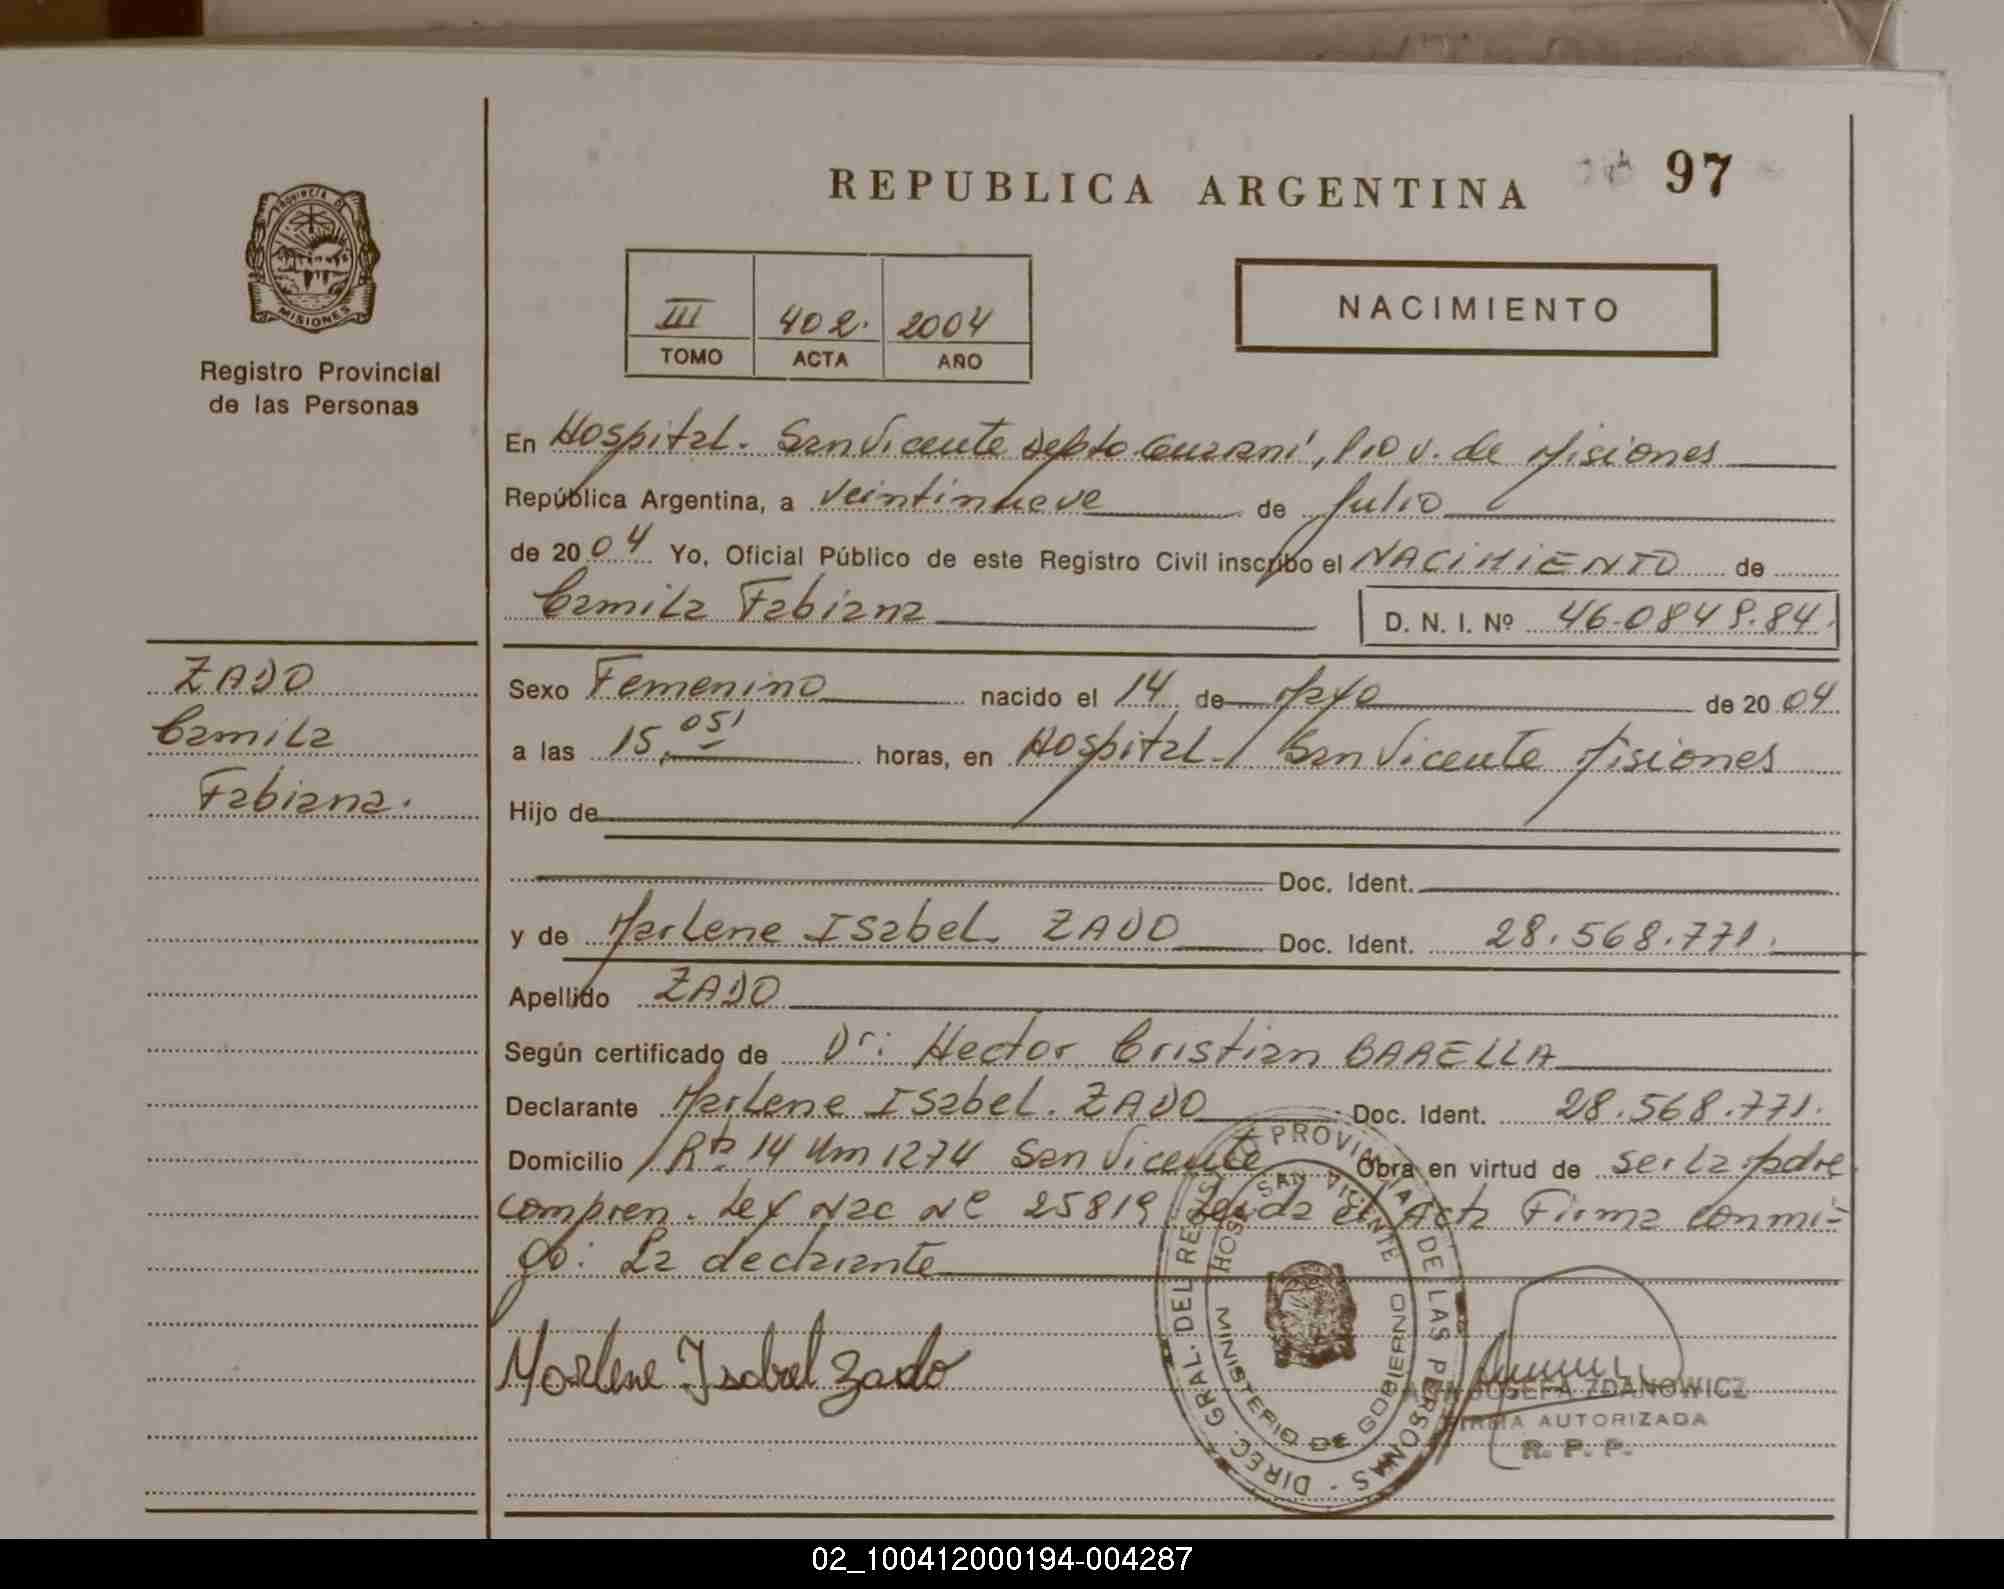 REPUBLICA ARGENTINA
97
PROVINCIA D MISIONES
Registro Provincial
de las Personas
III 402. 2004
TOMO ACTA AÑO
NACIMIENTO
En Hospital. San Vicente Depto Guaraní, Prov. de Misiones
República Argentina, a veintinueve de Julio
de 2004 Yo, Oficial Público de este Registro Civil inscribo el NACIMIENTO de
Camila Fabiana D. N. I. Nº 46.0849.84.
ZADO
Camila
Fabiana.
Sexo Femenino nacido el 14 de Mayo de 2004
a las 15,05' horas, en Hospital / San Vicente Misiones
Hijo de
Doc. Ident.
y de Marlene Isabel. ZADO Doc. Ident. 28.568.771.
Apellido ZADO
Según certificado de Dr: Hector Cristian BARELLA
Declarante Marlene Isabel. ZADO Doc. Ident. 28.568.771.
Domicilio Rta 14 Km 1274 San Vicente Obra en virtud de ser la Madre
compren. Ley Nac Nº 25819 Leida el Acta Firma conmi-
go: La declarante
Marlene Isabel Zado
DIREC. GRAL. DEL REGIST PROVINCIAL DE LAS PERSONAS
HOSP SAN VICENTE
MINISTERIO DE GOBIERNO
JOSEFA ZDANOWICZ
FIRMA AUTORIZADA
R. P. P.
02_100412000194-004287